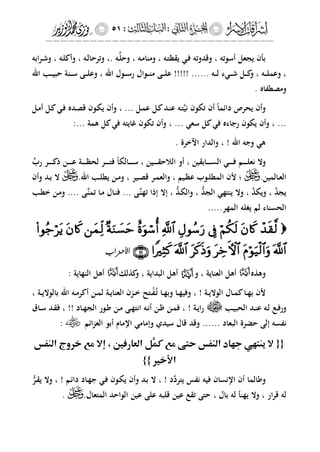 بأن يجعل أسوته ، وقدوته في يقظته ، ومنامه ، وحلِّه ، وترحاله ، وأكله ، وشرابه
، وعمله ، وكل شيء له ...... !!!!! على منوال رسول الله ، وعلى سنة حبيب الله
ومصطفاه .
وأن يحرص دائماً أن تكون نيَّته عند كل عمل ... ، وأن يكون قصده في كل أمل
... ، وأن يكون رجاءه في كل سعي ... ، وأن تكون غايته في كل همة ...:
هي وجه الله ! ، والدار الآخرة .
ولا تعلم في السابقين ، أو اللاحقين ، سالكاً فتر لحظة عن ذكر ربِّ
العالمين ؛ لأن المطلوب عظيم ، والعمر قصير ، ومن يطلب الله لا بد وأن
يجدَّ ، ويكدَّ ، ولا ينتهي الجدُّ ، والكدُّ ، إلا إذا تهنَّى ... فنال ما تمنَّى .... ومن خطب
الحسناء لم يغله المهر.....
﴿ لَّقَدْ كَانَ لَكُمْ فِي رَسُولِ ٱللَّهِ أُسْوَةٌ حَسَنَةٌ لِّمَن كَانَ يَرْجُواْ
ٱللَّهَ وَٱلْيَوْمَ ٱلْآخِرَ وَذَكَرَ ٱللَّهَ كَثِيرًا ﴾ الأحزاب
وهذه أهل العناية ، و أهل البداية ، وكذلك أهل النهاية :
لأن بها كمال الولاية ! ، وفيها وبها تُفْتح خزن العناية لمن أكرمه الله بالولاية ،
ورفع له عند الحبيب راية ! ، فمن ظن أنه انتهى من طور الجهاد !! ، فقد ساق
نفسه إلى حضرة البعاد ...... وقد قال سيدي وإمامي الإمام أبو العزائم :
{{ لا ينتهي جهاد النفس حتى مع كمَّل العارفين ، إلا مع خروج النفس
الأخير }}
وطالما أن الإنسان فيه نفس يتردَّد ! ، لا بد وأن يكون في جهاد دائم ! ، ولا يقرُّ
له قرار ، ولا يهنأ له بال ، حتى تقع عين قلبه على عين الواحد المتعال .